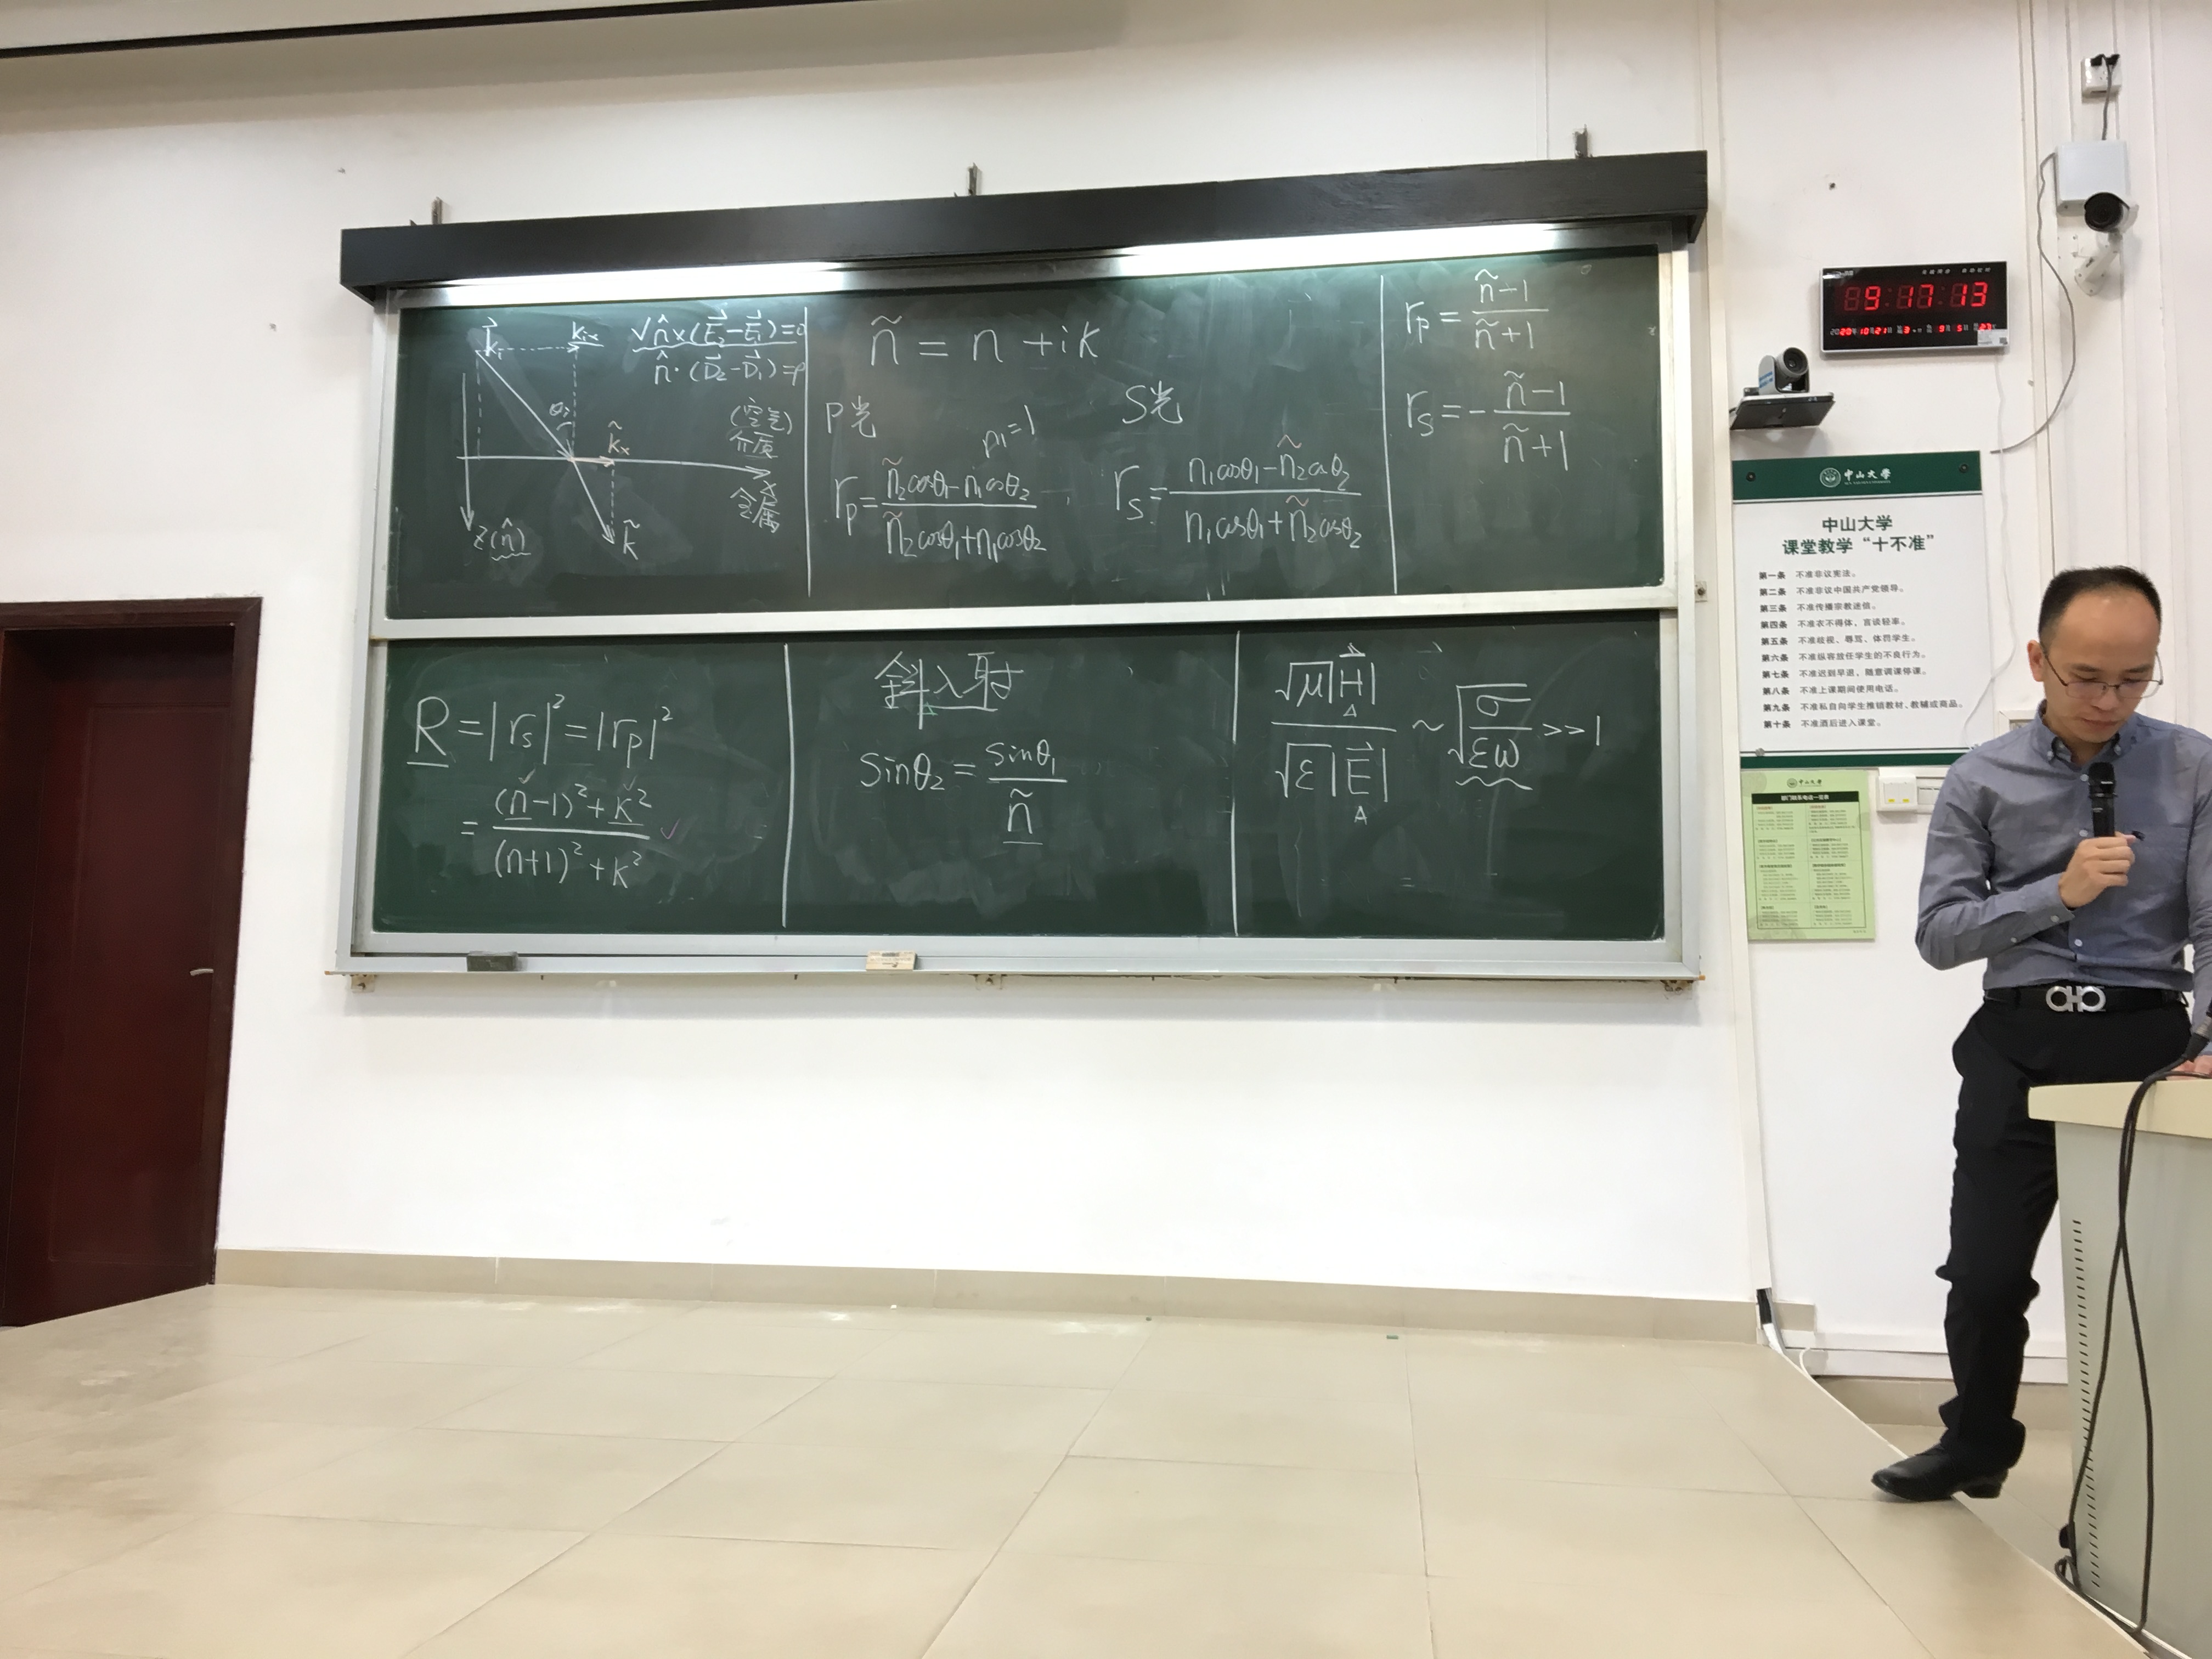 k⃗ᵢ
kᵢₓ
√n̂×(E⃗₂−E⃗₁)=0
n̂·(D⃗₂−D⃗₁)=ρ
θᵢ
k̃ₓ
(空气)
介质
x
金属
z(n̂)
k̃
ñ = n + ik
P光
n₁=1
rₚ= (ñ₂cosθ₁−n₁cosθ₂)/(ñ₂cosθ₁+n₁cosθ₂)
S光
rₛ= (n₁cosθ₁−ñ₂cosθ₂)/(n₁cosθ₁+ñ₂cosθ₂)
rₚ= (ñ−1)/(ñ+1)
rₛ=− (ñ−1)/(ñ+1)
R=|rₛ|²=|rₚ|²
= ((n−1)²+k²)/((n+1)²+k²) ✓
斜入射
sinθ₂= sinθ₁/ñ
√μ|H⃗|/√ε|E⃗| ~ √(σ/εω) >>1
9:17:13
中山大学
中山大学
课堂教学“十不准”
第一条 不准非议宪法。
第二条 不准非议中国共产党领导。
第三条 不准传播宗教迷信。
第四条 不准衣不得体，言谈轻率。
第五条 不准歧视、辱骂、体罚学生。
第六条 不准纵容放任学生的不良行为。
第七条 不准迟到早退，随意调课停课。
第八条 不准上课期间使用电话。
第九条 不准私自向学生推销教材、教辅或商品。
第十条 不准酒后进入课堂。
中山大学